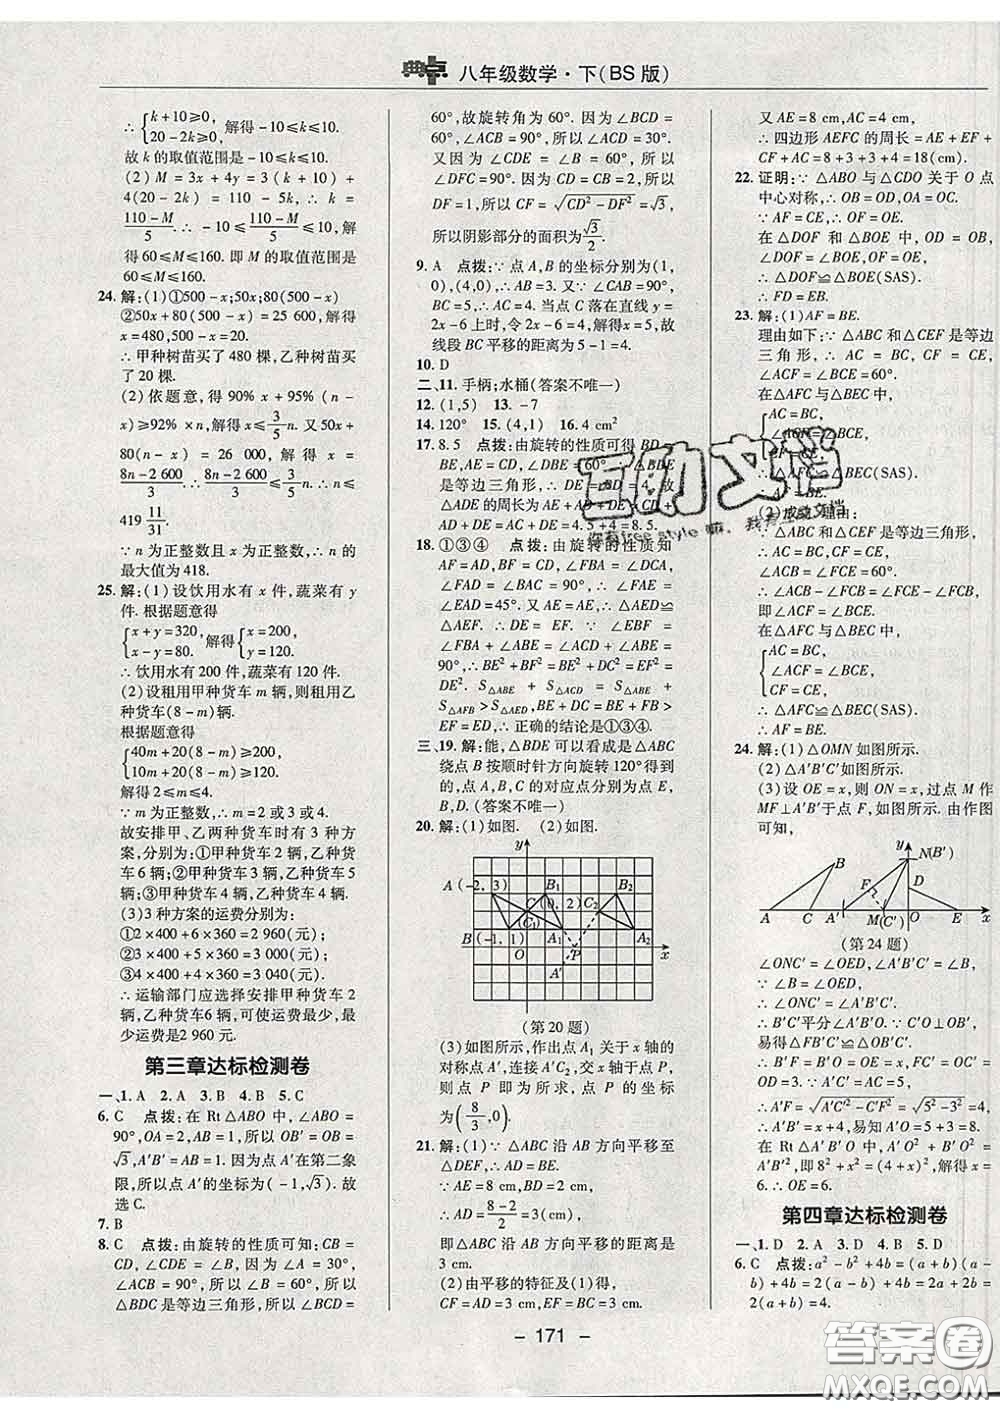 典点 八年级数学·下(BS版)
∴ { k+10≥0, 20-2k≥0, 解得-10≤k≤10.
故 k 的取值范围是-10≤k≤10.
(2) M=3x+4y=3(k+10)+
4(20-2k)=110-5k,∴k=
(110-M)/5.∴-10≤(110-M)/5≤10,解
得60≤M≤160.即 M 的取值范围是
60≤M≤160.
24.解:(1)①500-x;50x;80(500-x)
②50x+80(500-x)=25 600,解得
x=480,500-x=20.
∴甲种树苗买了480棵,乙种树苗买
了20棵.
(2)依题意,得 90%x+95%(n-
x)≥92%×n,解得x≤3/5 n.又50x+
80(n-x)=26 000,解得x=
(8n-2 600)/3,∴(8n-2 600)/3≤3/5 n,∴n≤
419 11/31.
∵n为正整数且x为正整数,∴n的
最大值为418.
25.解:(1)设饮用水有x件,蔬菜有y
件.根据题意得
{ x+y=320, x-y=80. 解得 { x=200, y=120.
∴饮用水有200件,蔬菜有120件.
(2)设租用甲种货车m辆,则租用乙
种货车(8-m)辆.
根据题意得
{ 40m+20(8-m)≥200, 10m+20(8-m)≥120.
解得2≤m≤4.
∵m为正整数,∴m=2或3或4.
故安排甲、乙两种货车时有3种方
案,分别为:①甲种货车2辆,乙种货
车6辆;②甲种货车3辆,乙种货车5
辆;③甲种货车4辆,乙种货车4辆.
(3)3种方案的运费分别为:
①2×400+6×360=2 960(元);
②3×400+5×360=3 000(元);
③4×400+4×360=3 040(元).
∴运输部门应选择安排甲种货车2
辆,乙种货车6辆,可使运费最少,最
少运费是2 960元.
第三章达标检测卷
一、1.A 2.A 3.B 4.B 5.C
6.C 点拨:在Rt△ABO中,∠ABO=
90°,OA=2,AB=1,所以OB'=OB=
√3,A'B'=AB=1.因为点A'在第二象
限,所以点A'的坐标为(-1,√3).故
选C.
7.B
8.C 点拨:由旋转的性质可知:CB=
CD,∠CDE=∠B.因为∠A=30°,
∠ACB=90°,所以∠B=60°,所以
△BDC是等边三角形,所以∠BCD=
60°,故旋转角为60°.因为∠BCD=
60°,∠ACB=90°,所以∠ACD=30°.
又因为∠CDE=∠B=60°,所以
∠DFC=90°.因为CD=CB=2,所以
DF=1,所以CF=√(CD²-DF²)=√3,
所以阴影部分的面积为√3/2.
9.A 点拨:∵点A,B的坐标分别为(1,
0),(4,0),∴AB=3.又∵∠CAB=90°,
BC=5,∴AC=4.当点C落在直线y=
2x-6上时,令2x-6=4,解得x=5,故
线段BC平移的距离为5-1=4.
10.D
二、11.手柄;水桶(答案不唯一)
12.(1,5) 13.-7
14.120° 15.(4,1) 16.4 cm²
17.8.5 点拨:由旋转的性质可得BD=
BE,AE=CD,∠DBE=60°,∴△DBE
是等边三角形,∴DE=BD=4.
∴△ADE的周长为AE+AD+DE=
CD+AD+DE=AC+DE=4.5+4=8.5.
18.①③④ 点拨:由旋转的性质知
AF=AD,BF=CD,∠FBA=∠DCA,
∠FAD=∠BAC=90°,∴∠FAE=
∠EAD=45°.又AE=AE,∴△AED≌
△AEF.∴EF=DE.∵∠EBF=
∠FBA+∠ABE=∠ACD+∠ABE=
90°,∴BE²+BF²=BE²+DC²=EF²=
DE².∵S△ABE+S△ACD=S△ABE+
S△AFB>S△AEF,BE+DC=BE+BF>
EF=ED.∴正确的结论是①③④.
三、19.解:能,△BDE可以看成是△ABC
绕点B按顺时针方向旋转120°得到
的,点A,B,C的对应点分别为点E,
B,D.(答案不唯一)
20.解:(1)如图. (2)如图.
y
A(-2,3) B₁ B₂
C (0,2) C₂
(C₁)
B(-1,1) A₁ A₂
O P x
A'
(第20题)
(3)如图所示,作出点A₁关于x轴的
对称点A',连接A'C₂,交x轴于点P,
则点P即为所求,点P的坐标
为(8/3,0).
21.解:(1)∵△ABC沿AB方向平移至
△DEF,∴AD=BE.
∵AE=8 cm,DB=2 cm,
∴AD=(8-2)/2=3(cm),
即△ABC沿AB方向平移的距离是
3 cm.
(2)由平移的特征及(1)得,
CF=AD=3 cm,EF=BC=3 cm,
又AE=8 cm,AC=4 cm,
∴四边形AEFC的周长=AE+EF+
CF+AC=8+3+3+4=18(cm).
22.证明:∵△ABO与△CDO关于O点
中心对称,∴OB=OD,OA=OC.
∵AF=CE,∴OF=OE.
在△DOF和△BOE中,OD=OB,
∠DOF=∠BOE,OF=OE,
∴△DOF≌△BOE(SAS).
∴FD=EB.
23.解:(1)AF=BE.
理由如下:∵△ABC和△CEF是等边
三角形,∴AC=BC,CF=CE,
∠ACF=∠BCE=60°.
在△AFC与△BEC中,
{ AC=BC, ∠ACF=∠BCE, CF=CE,
∴△AFC≌△BEC(SAS).
∴AF=BE.
(2)成立.理由:
∵△ABC和△CEF是等边三角形,
∴AC=BC,CF=CE,
∠ACB=∠FCE=60°.
∴∠ACB-∠FCB=∠FCE-∠FCB,
即∠ACF=∠BCE.
在△AFC与△BEC中,
{ AC=BC, ∠ACF=∠BCE, CF=CE,
∴△AFC≌△BEC(SAS).
∴AF=BE.
24.解:(1)△OMN如图所示.
(2)△A'B'C'如图所示.
(3)设OE=x,则ON=x,过点M作
MF⊥A'B'于点F,如图所示.由作图
可知,
y N(B')
B F
A C A' M(C') O E x
(第24题)
∠ONC'=∠OED,∠A'B'C'=∠B,
∵∠B=∠OED,
∴∠ONC'=∠A'B'C'.
∴B'C'平分∠A'B'O.∵C'O⊥OB',
易得C'F=C'O=OD=3,
∴B'F=B'O=OE=x,FC'=OC'=
OD=3.∵A'C'=AC=5,
∴A'F=√(A'C'²-C'F²)=√(5²-3²)=4.
∴A'B'=x+4,易知A'O=5+3=8.
在Rt△A'B'O中,A'O²+B'O²=
A'B'²,即8²+x²=(4+x)²,解得x=
6.∴OE=6.
第四章达标检测卷
一、1.D 2.A 3.D 4.B 5.D
6.C 点拨:a²-b²+4b=(a+b)(a-
b)+4b=2(a-b)+4b=2a+2b=
2(a+b)=4.
- 171 -
互助文档
你有free style嘛, 我有互助文档
答案圈
MXQE.COM